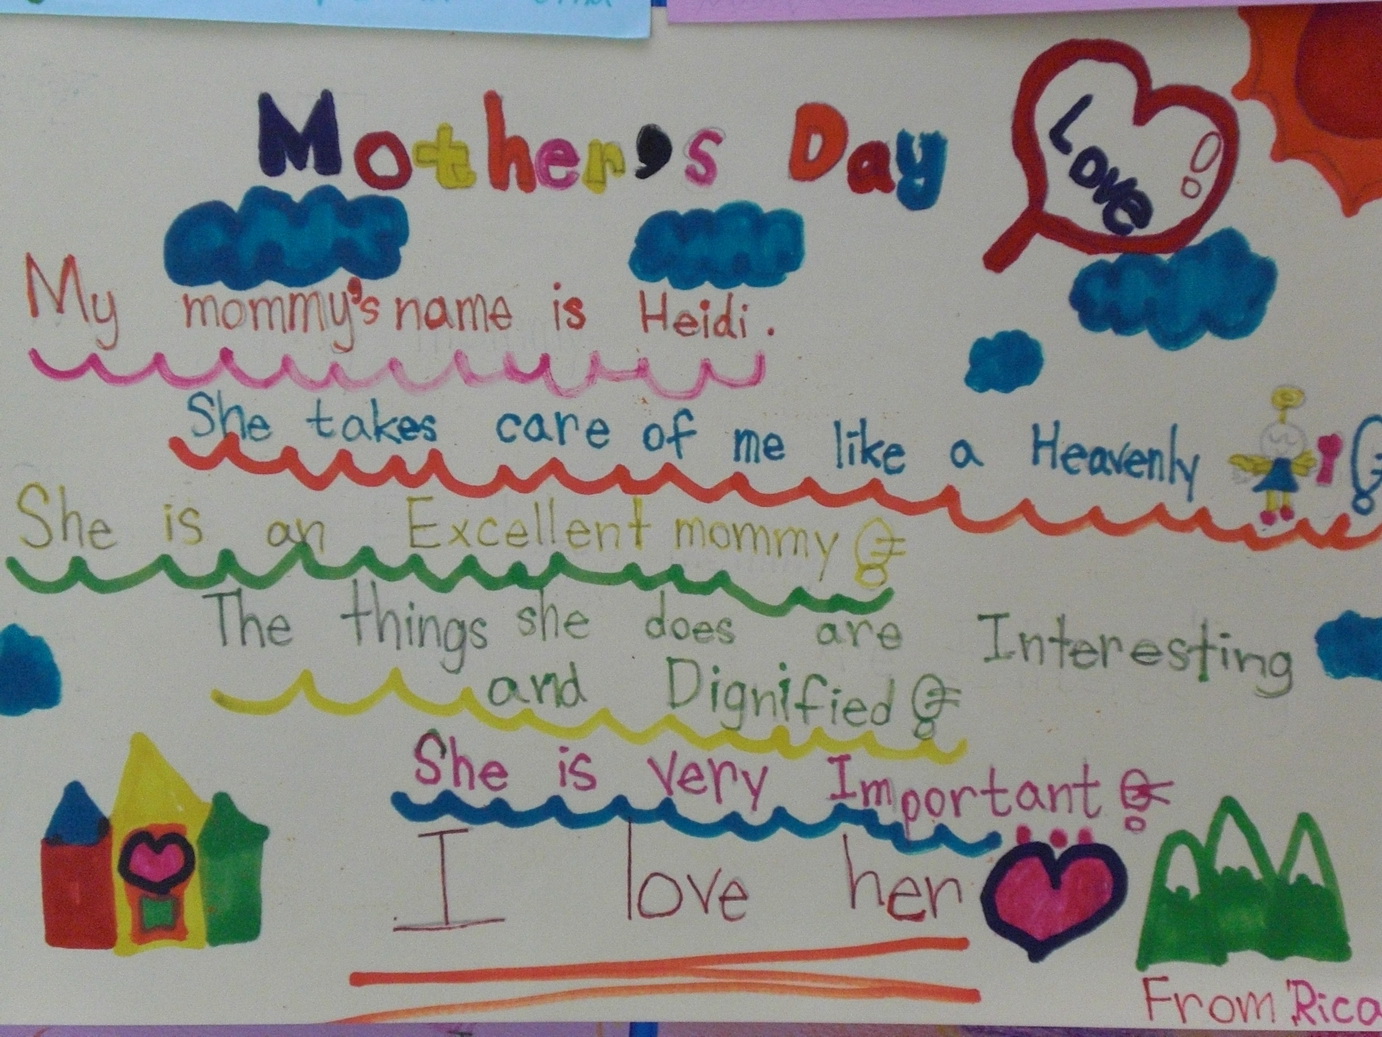 Mother's Day
Love
My mommy's name is Heidi.
She takes care of me like a Heavenly
She is an Excellent mommy
The things she does are Interesting
and Dignified
She is very Important
I love her
From Rica